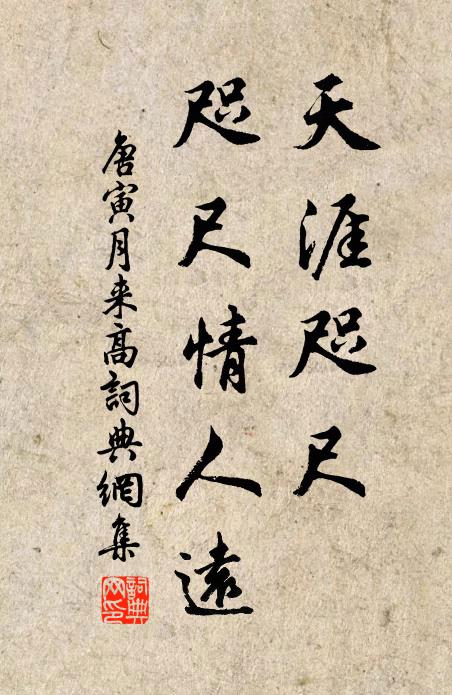 天涯咫尺
咫尺情人遠
唐寅月来高詞典網集
詞典网印